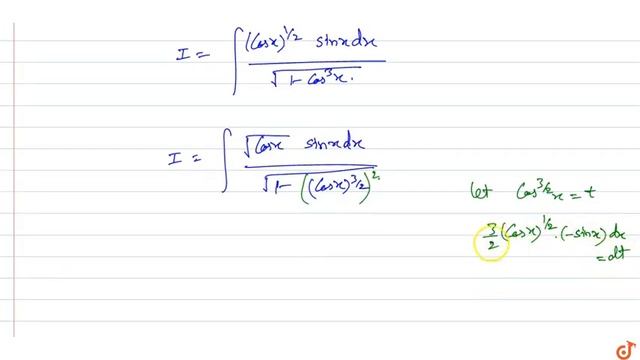 I = ∫ (Cosx)^1/2 sinx dx / √(1-Cos^3x.)
I = ∫ √Cosx sinx dx / √(1-((Cosx)^3/2)^2)
let Cos^3/2 x = t
3/2 (Cosx)^1/2 . (-sinx) dx
= dt